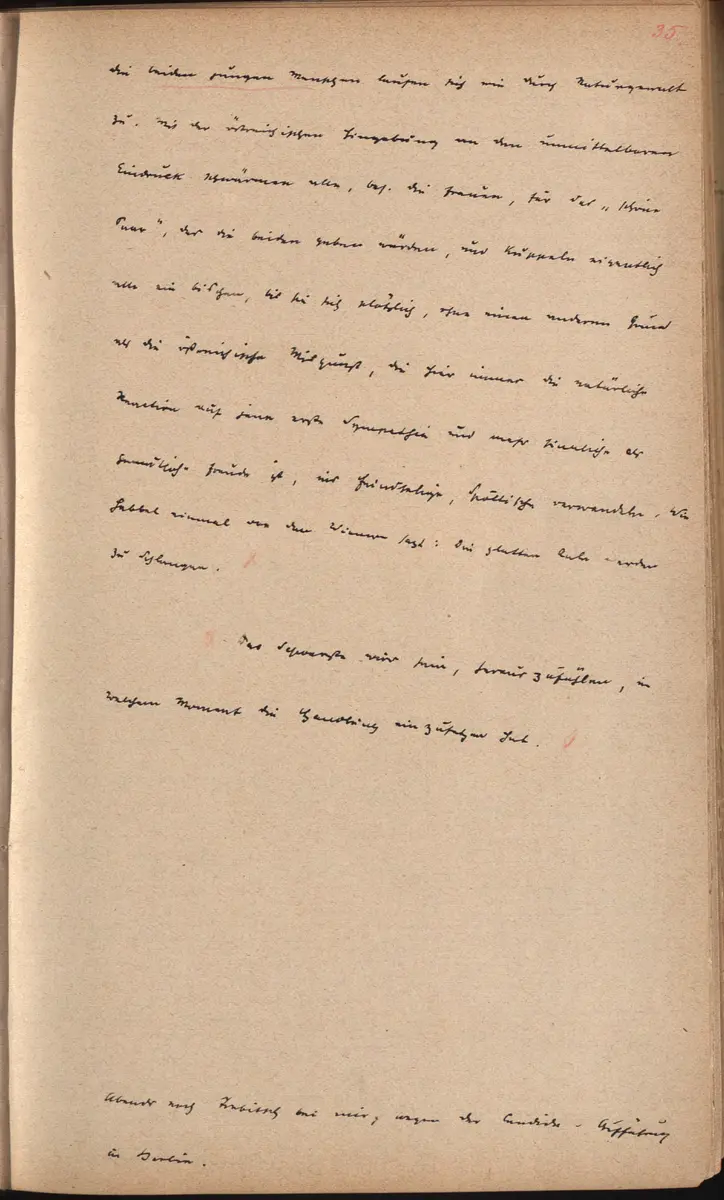 35.
die beiden jungen Menschen laufen sich wie durch Naturgewalt
zu. Mit der östreichischen Hingebung an den unmittelbaren
Eindruck schwärmen alle, bes. die Frauen, für das „schöne
Paar", das die beiden geben würden, und kuppeln eigentlich
alle ein bischen, bis sie sich plötzlich, ohne einen anderen Grund
als die östreichische Misgunst, die hier immer die natürliche
Reaction auf jene erste Sympathie und mehr sinnliche als
gemütliche Freude ist, ins Feindselige, Spöttische verwandeln. Wie
Hebbel einmal von den Wienern sagt: Die glatten Aale werden
zu Schlangen.
Das Schwerste wird sein, herauszufühlen, in
welchem Moment die Handlung einzusetzen hat.
Abends noch Trebitsch bei mir, wegen der Candida-Aufführung
in Berlin.